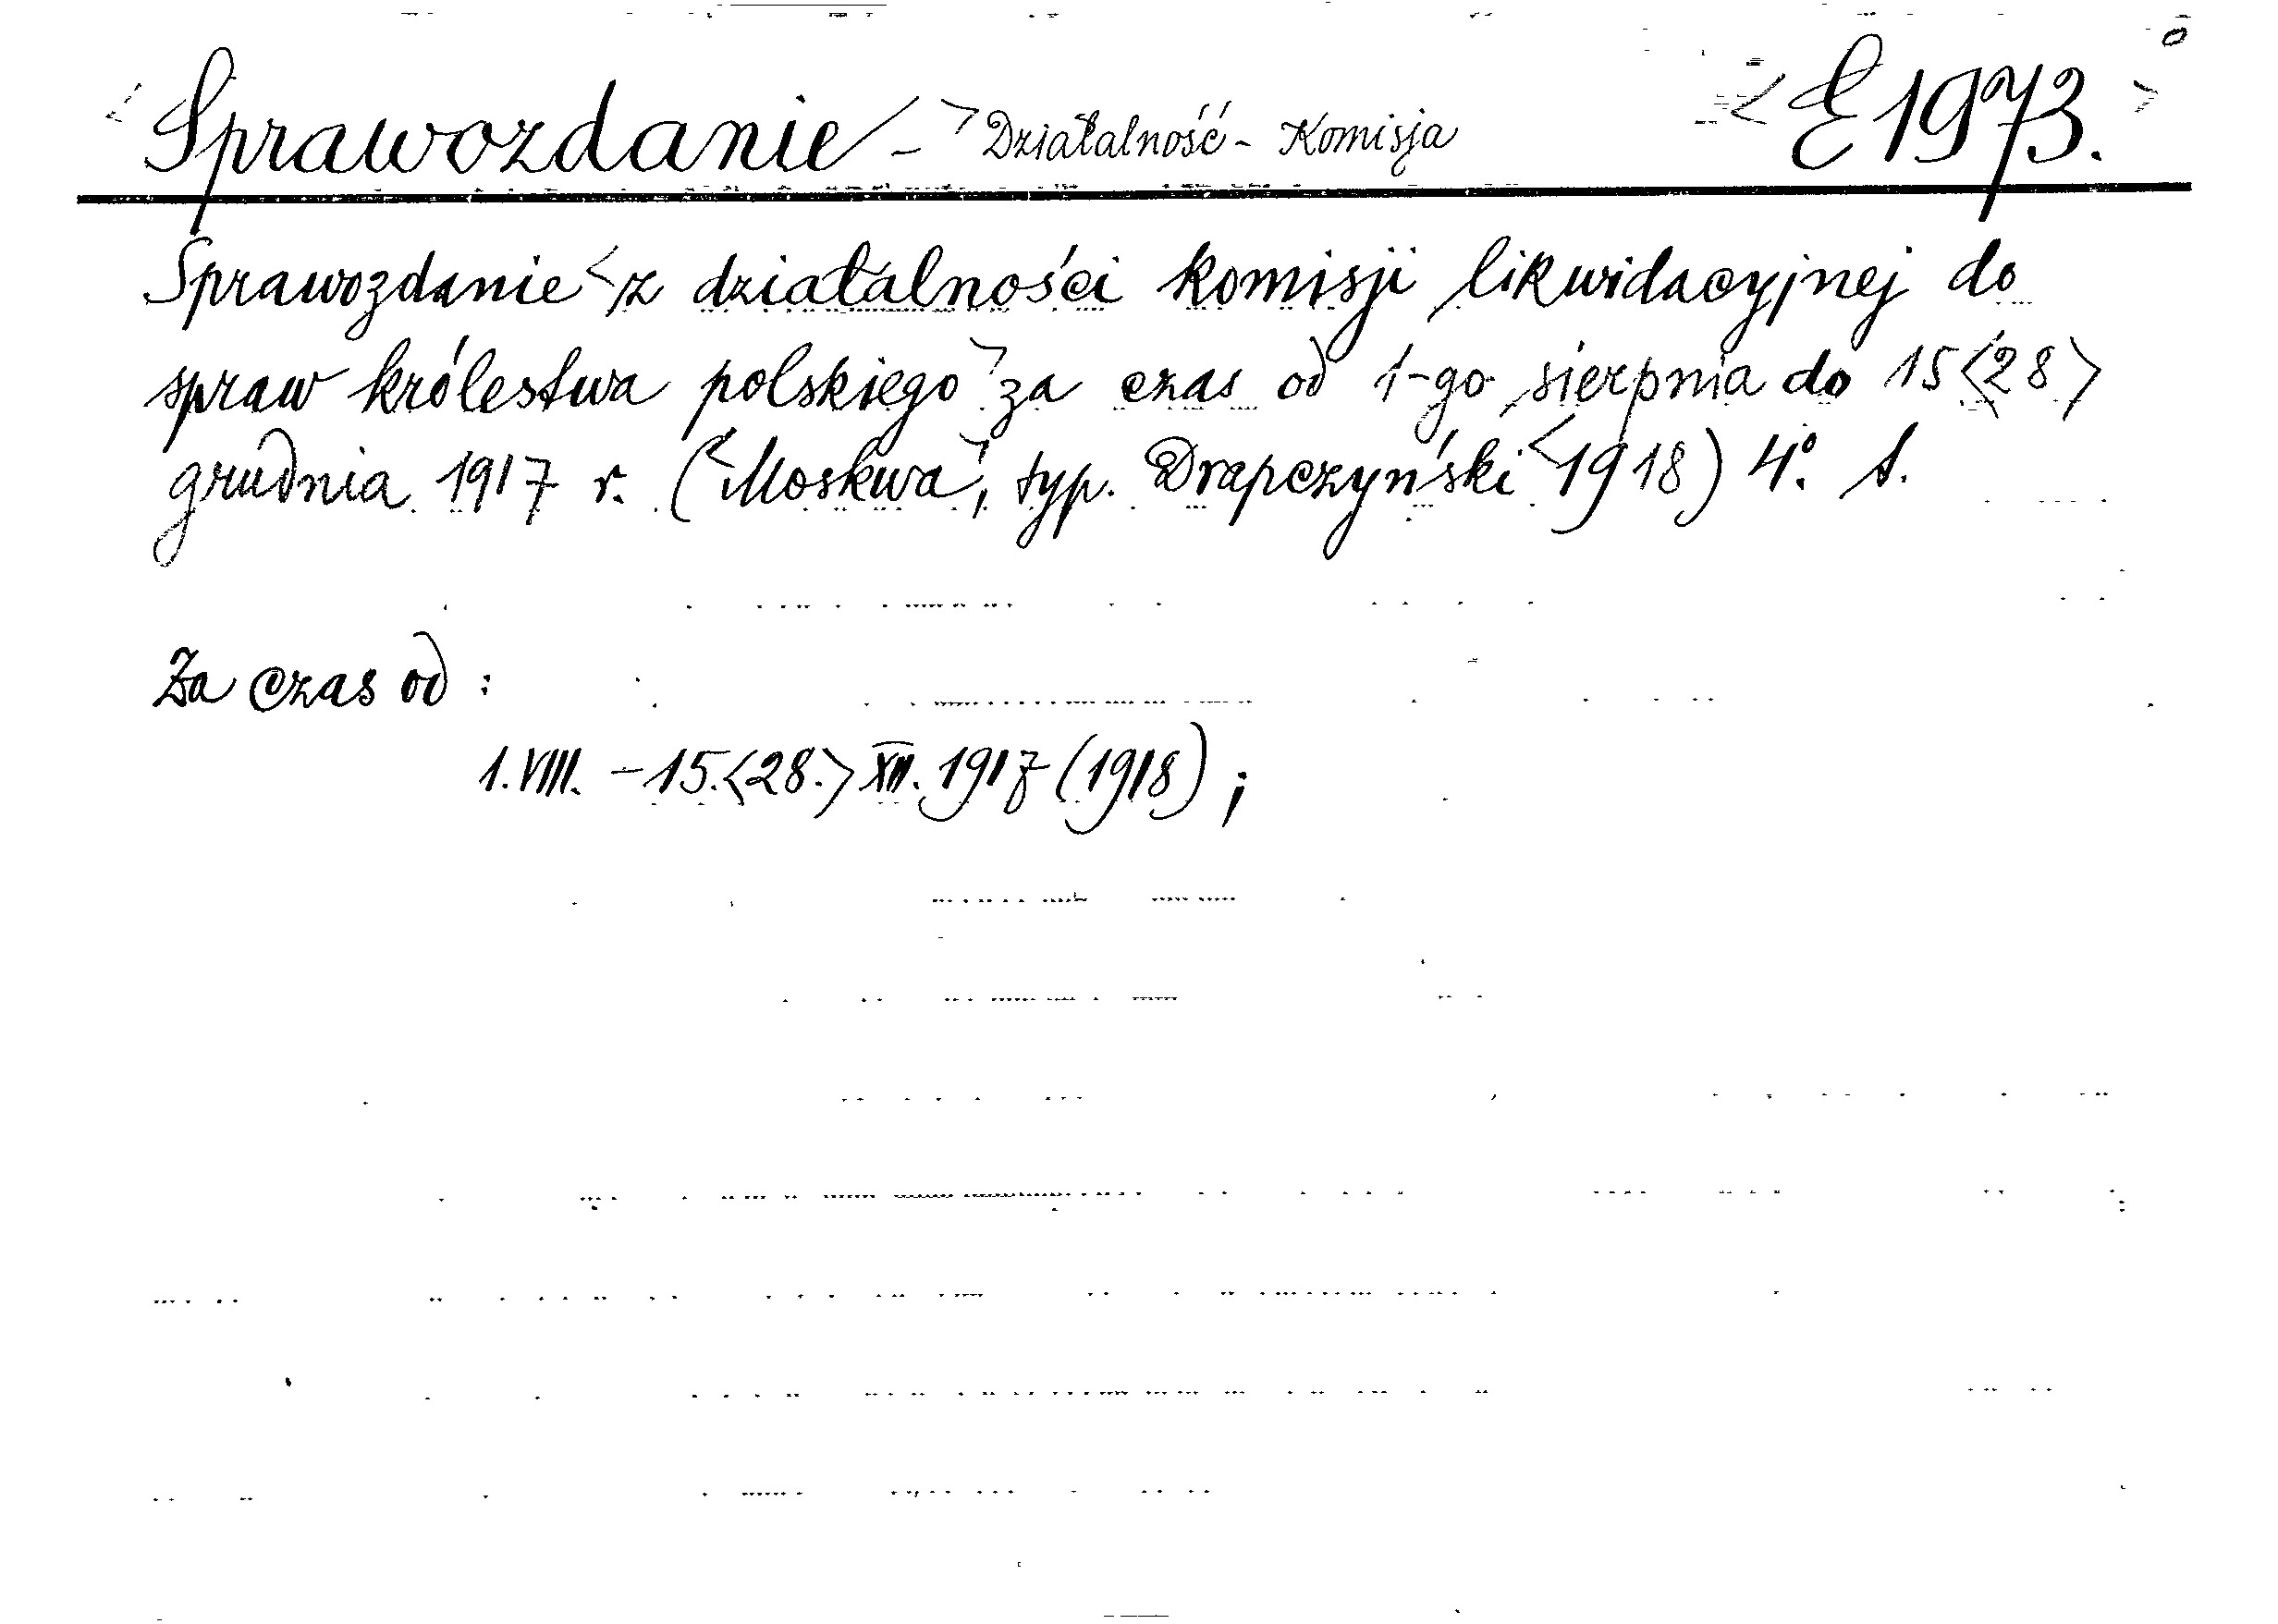 Sprawozdanie - Działalność - Komisja <E 1973.>
Sprawozdanie z działalności komisji likwidacyjnej do
spraw królestwa polskiego za czas od 1-go sierpnia do 15<28>
grudnia 1917 r. (Moskwa, typ. Drapczyński 1918) 4º. s.
Za czas od :
1.VIII. - 15.<28.> XII. 1917 (1918) ;